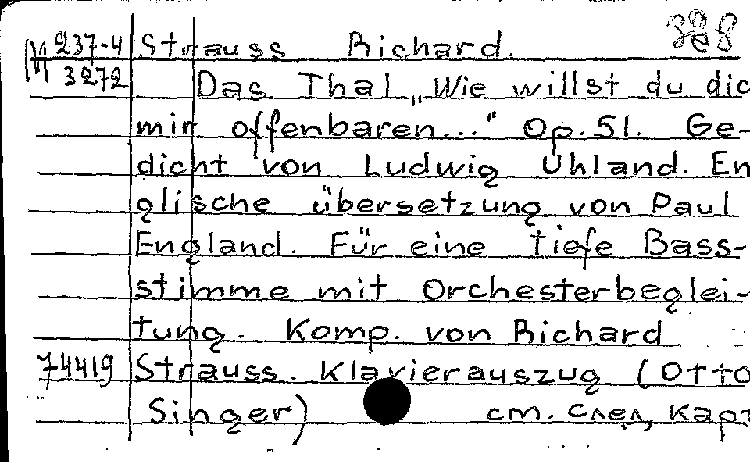 М 237-4 Strauss Richard. 328
3272 Das Thal „Wie willst du dic
mir offenbaren..." Op. 51. Ge-
dicht von Ludwig Uhland. En
glische übersetzung von Paul
England. Für eine tiefe Bass-
stimme mit Orchesterbeglei-
tung. Komp. von Richard
74419 Strauss. Klavierauszug (Otto
Singer) см. след. карт